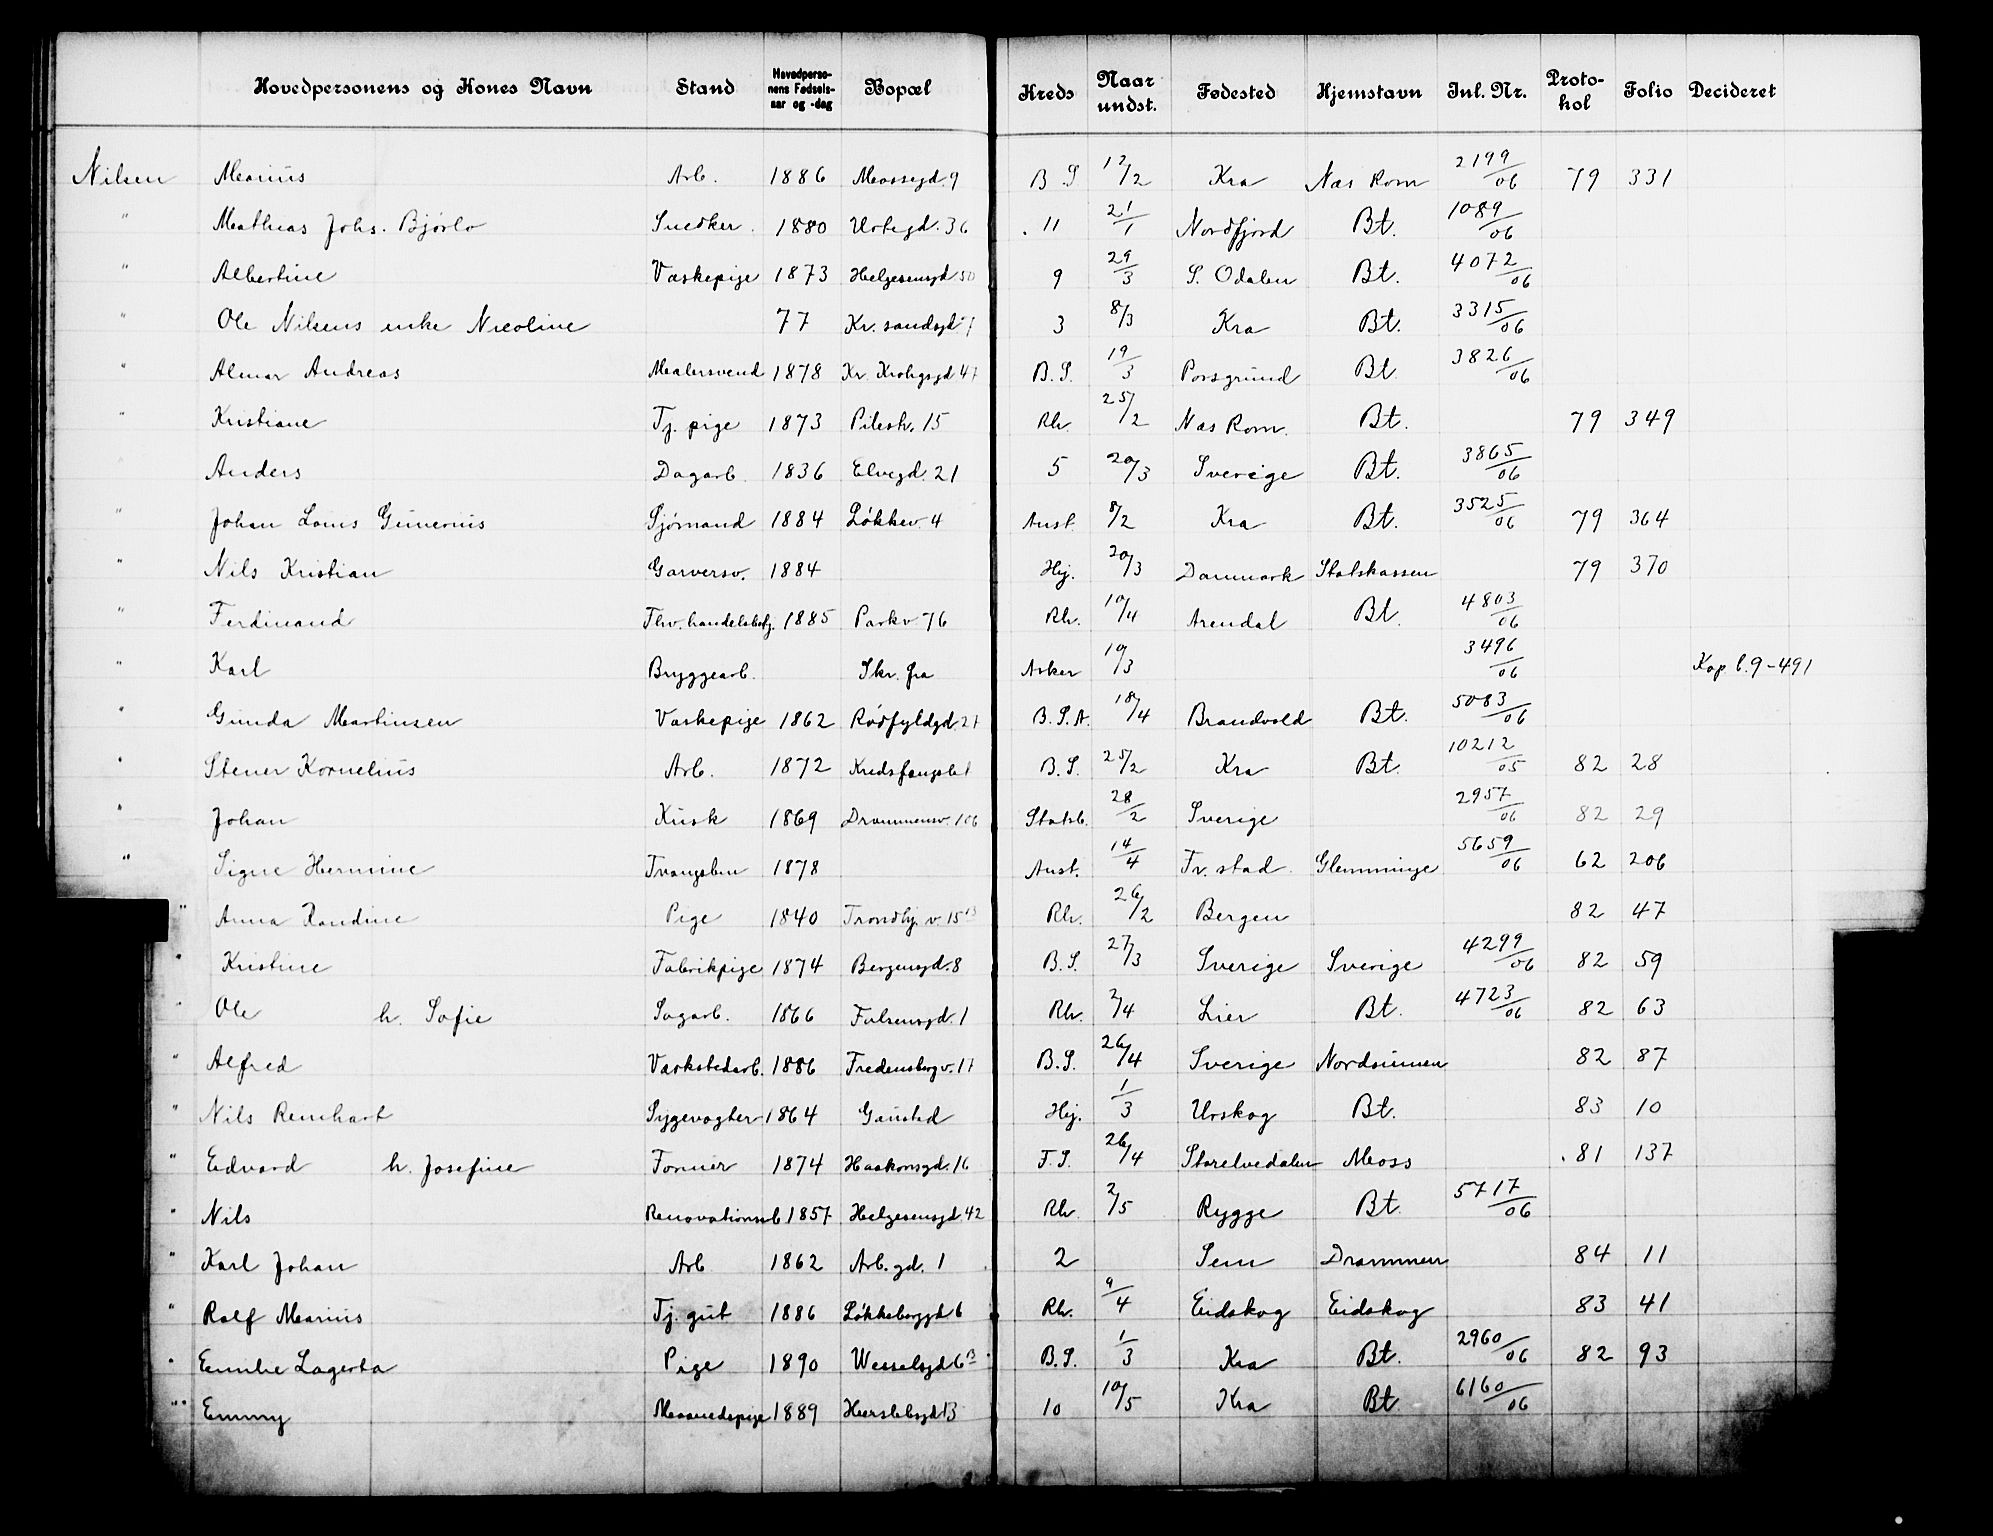 Hovedpersonens og Kones Navn Stand Hovedpersonens Fødselsaar og -dag Bopæl Kreds Naar undst. Fødested Hjemstavn Inl. Nr. Protokol Folio Decideret
Nilsen Marius Arb. 1886 Mossegd. 9 B S 12/2 Kra Næs Rom 2199/06 79 331
" Mathias Johs. Bjørlo Snedker 1880 Urtegd. 36 11 21/1 Nordfjord Bt. 1089/06
" Albertine Vaskepige 1873 Helgesensgd 50 9 29/3 S. Odalen Bt. 4072/06
" Ole Nilsens enke Nicoline 77 Kr. sandsgd 3 8/3 Kra Bt. 3315/06
" Almar Andreas Malersvend 1878 Kr. Krohgsgd 47 B. S. 19/3 Porsgrund Bt. 3826/06
" Kristiane Tj. pige 1873 Pilestr. 15 Rh. 25/2 Næs Rom. Bt. 79 349
" Anders Dagarb. 1836 Elvegd. 21 5 20/3 Sverige Bt. 3865/06
" Johan Louis Gunerius Sjømand 1884 Løkkev. 4 Anst. 8/2 Kra Bt. 3525/06 79 364
" Nils Kristian Garversv. 1884 Hj. 20/3 Danmark Statskassen 79 370
" Ferdinand Fhv. handelsbetj. 1885 Parkv 76 Rh. 10/4 Arendal Bt. 4803/06
" Karl Bryggearb. Skr. fra Asker 10/3 3496/06 Kop. b. 9-491
" Gunda Martinsen Vaskepige 1862 Rødfyldgd. 21 B. S. A. 18/4 Brandvold Bt. 5083/06
" Stener Kornelius Arb. 1872 Kredsfængslet B. S. 25/2 Kra Bt. 10212/05 82 28
" Johan Kusk 1869 Drammensv. 106 Statsb. 28/2 Sverige 2957/06 82 29
" Signe Hermine Tvangslem 1878 Anst. 14/4 Fr. stad Glemminge 5659/06 62 206
" Anna Randine Pige 1840 Trondhj. v. 15 B Rh. 26/2 Bergen 82 47
" Kristine Fabrikpige 1874 Bergensgd. 8 B. S. 27/3 Sverige Sverige 4299/06 82 59
" Ole h. Sofie Sagarb. 1866 Falsensgd. 1 Rh. 2/4 Lier Bt. 4723/06 82 63
" Alfred Værkstedarb. 1886 Fredensborgv. 17 B. S. 26/4 Sverige Nordsinnen 82 87
" Nils Reinhart Sygevogter 1864 Gausted Hj. 1/3 Urskog Bt. 83 10
" Edvard h. Josefine Former 1874 Haakonsgd. 16 F. S. 26/4 Storelvedalen Moss 81 137
" Nils Renovationsarb 1857 Helgesensgd. 42 Rh. 2/5 Rygge Bt. 5717/06
" Karl Johan Arb 1862 Arb. gd. 1 2 Sem Drammen 84 11
" Rolf Marius Tj. gut 1886 Løkkeberggd 6 Rh. 9/4 Eidskog Eidskog 83 41
" Emilie Lagerta Pige 1890 Wesselsgd 6 B B. S. 1/3 Kra Bt. 2960/06 82 93
" Emmy Maanedspige 1889 Herslebsgd 13 10 10/5 Kra Bt. 6160/06